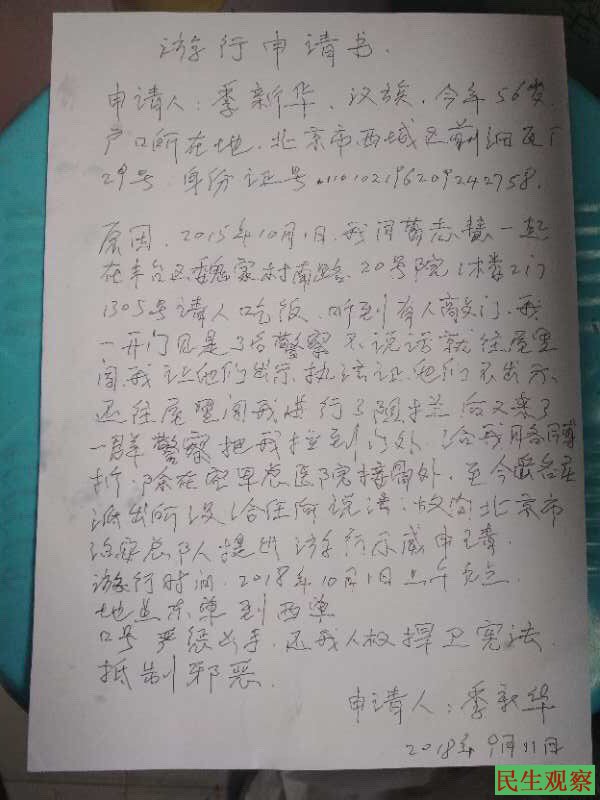 游行申请书.
申请人：季新华、汉族，今年56岁
户口所在地，北京市西城区前细瓦厂
29号，身份证号，110102196209242758.
原因，2015年10月1日，我同葛志慧一起
在丰台区魏家村南路，20号院1楼2门
1305号请人吃饭、听到有人敲门，我
一开门见是3名警察不说话就往屋里
闯，我让他们出示执法证，他们不出示
还往屋里闯我进行了阻拦后又来了
一群警察把我拉到门外，给我
折，除在空军总医院接骨外，至今
派出所没给任何说法；故向北京市
治安总队提出游行示威申请.
游行时间，2018年10月1日上午九点.
地点东单到西单
口号 严惩凶手，还我人权捍卫宪法，
抵制邪恶.
申请人：季新华
2018年9月11日
民生观察